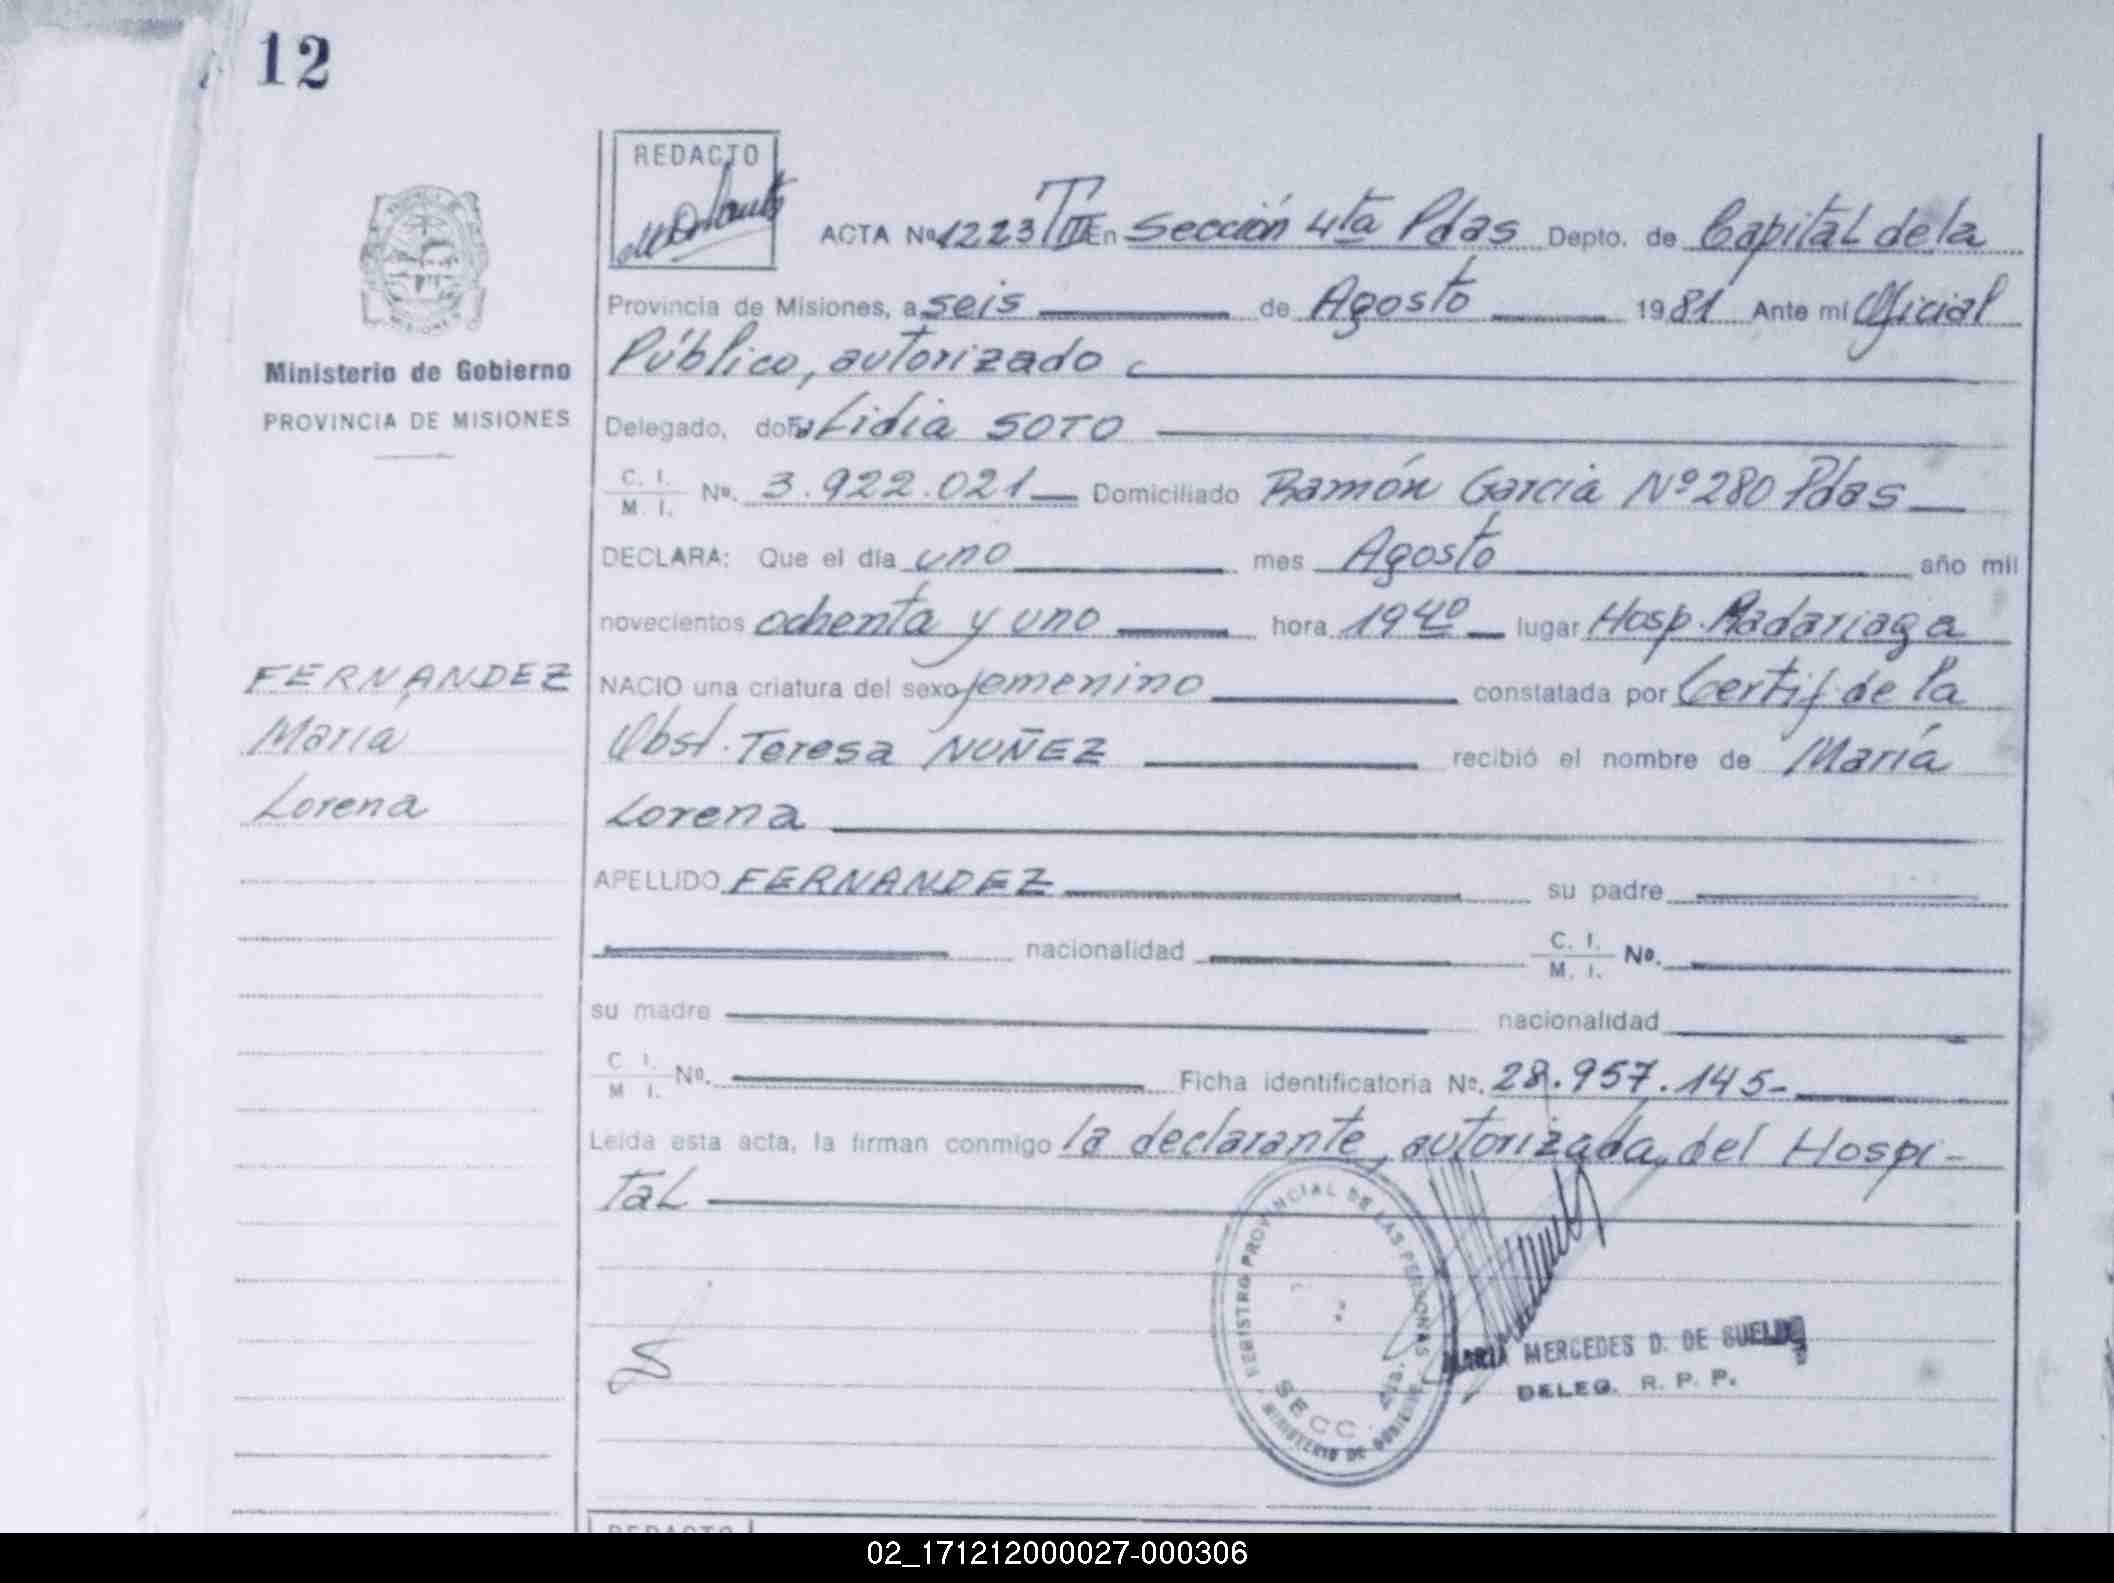 12
REDACTO
ACTA Nº 1223 T III En Sección 4ta Pdas Depto. de Capital de la
Provincia de Misiones, a seis de Agosto 1981 Ante mí Oficial
Ministerio de Gobierno
PROVINCIA DE MISIONES
Público, autorizado
Delegado, doña Lidia SOTO
C. I.
M. I. Nº. 3.922.021 Domiciliado Ramón Garcia Nº 280 Pdas
DECLARA: Que el día uno mes Agosto año mil
novecientos ochenta y uno hora 19 40 lugar Hosp. Madariaga
FERNANDEZ
María
Lorena
NACIO una criatura del sexo femenino constatada por Certif. de la
Obst. Teresa NUÑEZ recibió el nombre de María
Lorena
APELLIDO FERNANDEZ su padre
nacionalidad C. I.
M. I. Nº.
su madre nacionalidad
C. I.
M. I. Nº. Ficha identificatoria Nº. 28.957.145-
Leída esta acta, la firman conmigo la declarante, autorizada, del Hospi-
tal
REGISTRO PROVINCIAL DE LAS PERSONAS
SECC. 4ta.
MINISTERIO DE GOBIERNO
MARIA MERCEDES D. DE
DELEG. R. P. P.
REDACTO
02_171212000027-000306